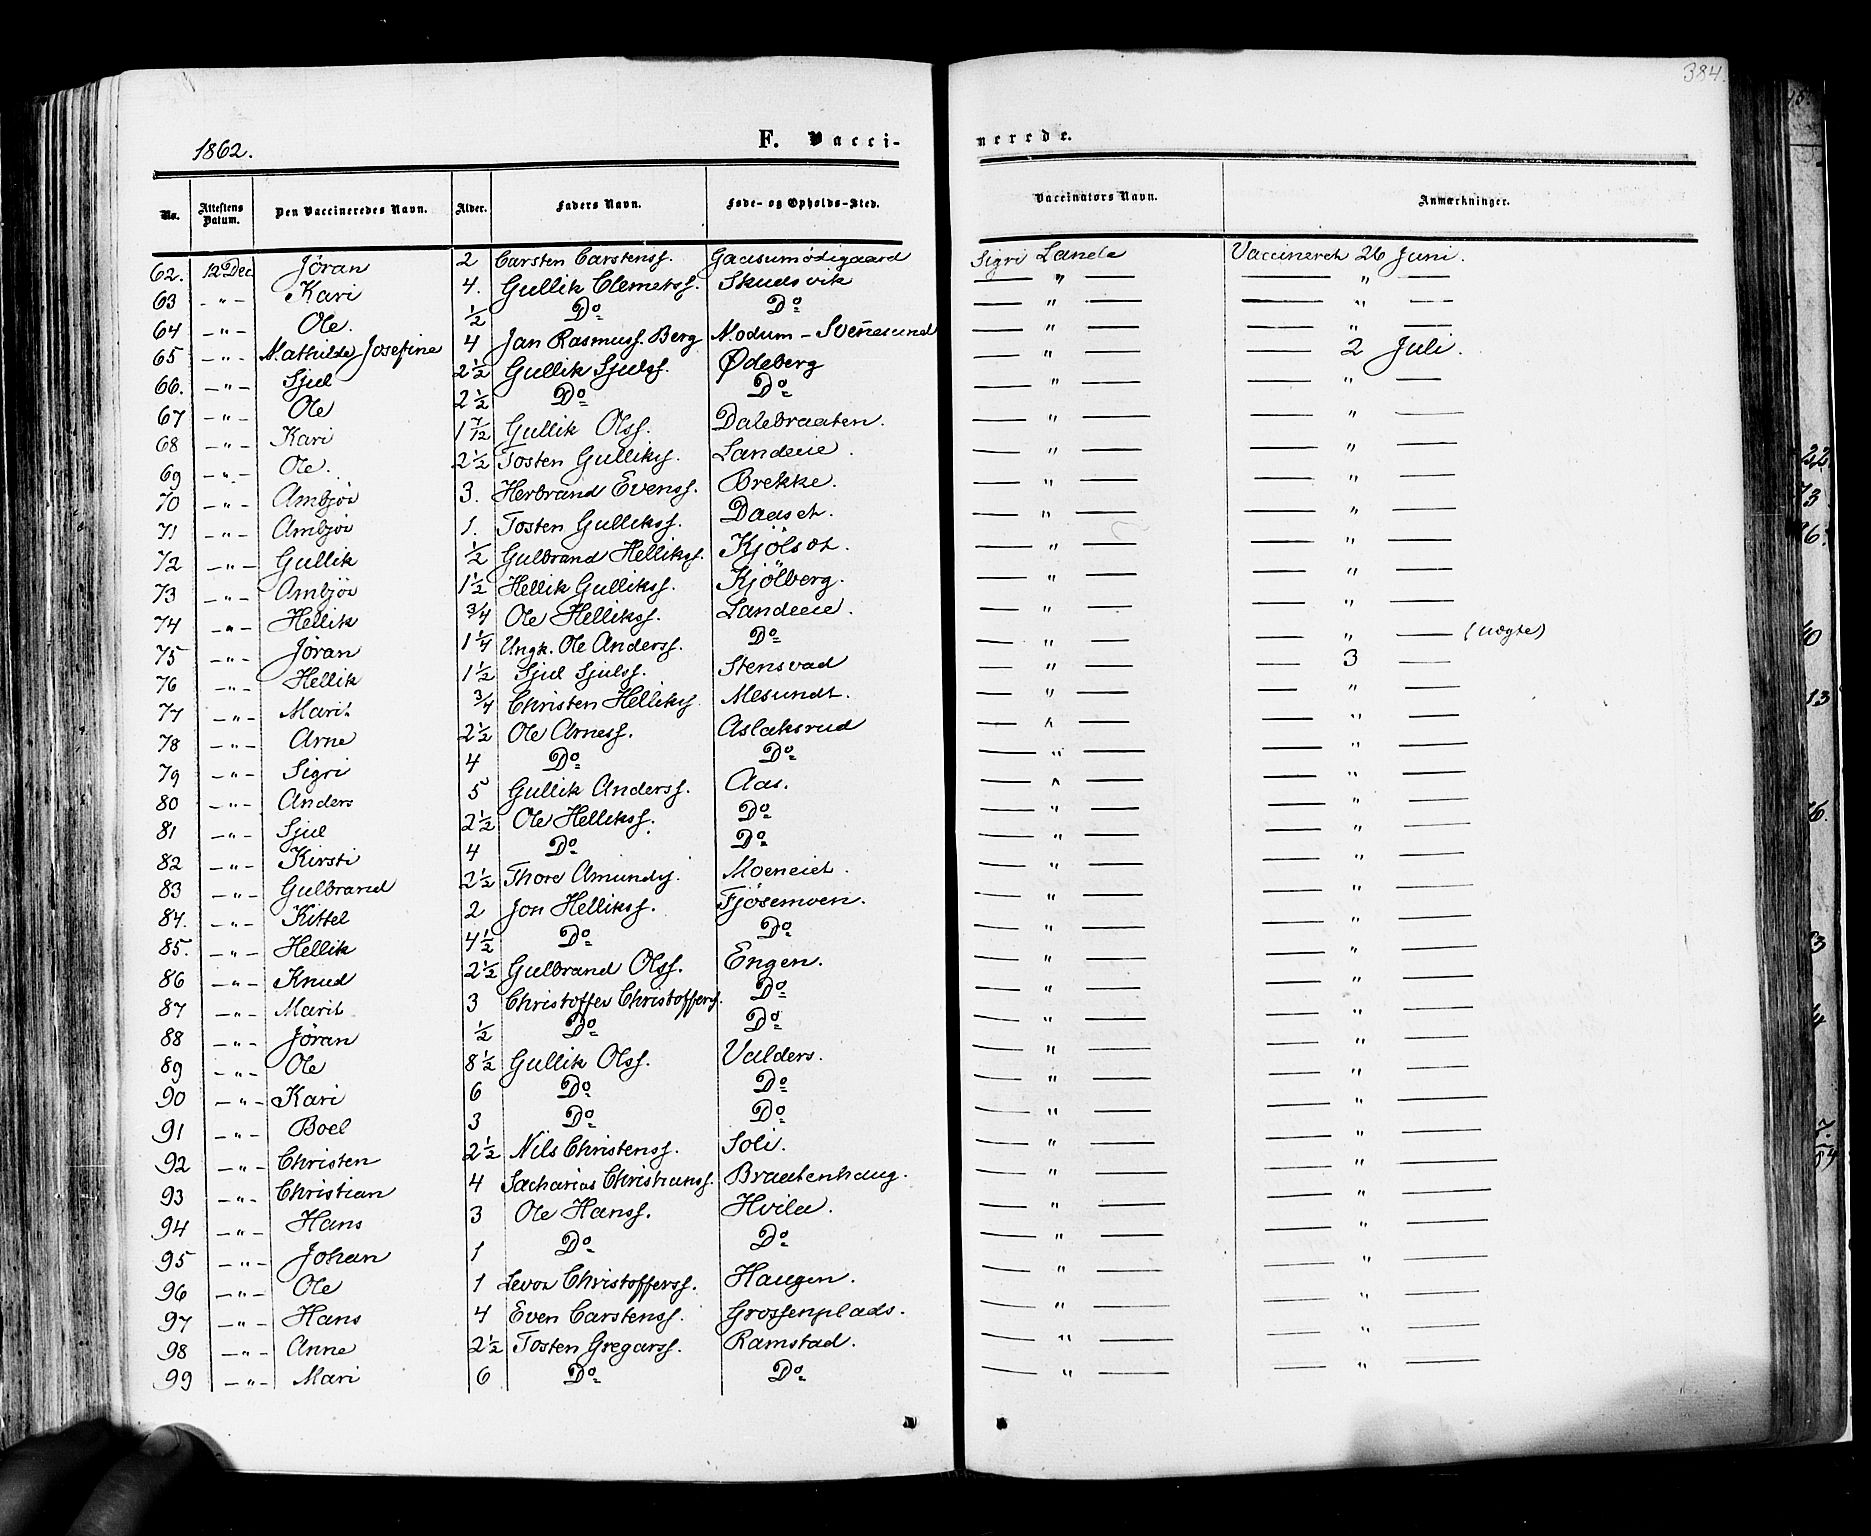 384.
1862. F. Vacci- nerede.
No. Attestens Datum. Den Vaccineredes Navn. Alder. Faders Navn. Føde- og Opholds-Sted. Vaccinators Navn. Anmærkninger.
62. 12 Dec Jøran 2 Carsten Carstenss. Gausumødigaard Sigri Lande Vaccineret 26 Juni.
63 -"- Kari 4. Gullik Clemetss. Skudsvik — " — — " —
64 -"- Ole. ½ Do Do — " — — " —
65 -"- Mathilde Josefine 4 Jan Rasmuss. Berg Modum - Svenesund — " — — " —
66. -"- Sjul 2½ Gullik Sjulss. Ødeberg — " — — 2 Juli.
67 -"- Ole 2½ Do Do — " — — " —
68 -"- Kari 1 7/12 Gullik Olss. Dalebraaten. — " — — " —
69 -"- Ole. 2½ Tosten Gulliks. Landeie. — " — — " —
70 -"- Ambjør 3. Herbrand Evenss. Brekke. — " — — " —
71 -"- Ambjør 1. Tosten Gullikss. Daaset. — " — — " —
72 -"- Gullik ½ Gulbrand Hellikss. Kjölset. — " — — " —
73 -"- Ambjør 1½ Hellik Gullikss. Kjölberg. — " — — " —
74 -"- Hellik ¾ Ole Hellikss. Landeie. — " — — " —
75 -"- Jøran 1¼ Ungk. Ole Anderss. Do — " — — " — (uægte)
76 -"- Hellik 1½ Sjul Sjulss. Stensvad — " — — 3 —
77 -"- Marit ¾ Christen Helliks. Mesundt. — " — — " —
78 -"- Arne 2½ Ole Arness. Aslaksrud — " — — " —
79 -"- Sigri 4 Do Do — " — — " —
80 -"- Anders 5 Gullik Anderss. Aas. — " — — " —
81 -"- Sjul 2½ Ole Hellikss. Do — " — — " —
82 -"- Kirsti 4 Do Do — " — — " —
83 -"- Gulbrand 2½ Thore Amunds. Moeneiet. — " — — " —
84. -"- Kittel 2 Jon Hellikss. Fjøsemoen. — " — — " —
85. -"- Hellik 4½ Do Do — " — — " —
86 -"- Knud 2½ Gulbrand Olss. Engen. — " — — " —
87 -"- Marit 3 Christoffer Christoffers. Do — " — — " —
88 -"- Jøran ½ Do Do — " — — " —
89 -"- Ole 8½ Gullik Olss. Valders. — " — — " —
90 -"- Kari 6 Do Do — " — — " —
91 -"- Boel 3 Do Do — " — — " —
92 -"- Christen 2½ Nils Christenss. Soli. — " — — " —
93 -"- Christian 4 Sacharias Christianss. Braatenhaug. — " — — " —
94 -"- Hans 3 Ole Hanss. Hvila. — " — — " —
95 -"- Johan 1 Do Do — " — — " —
96 -"- Ole 1 Levor Christofferss. Haugen. — " — — " —
97 -"- Hans 4 Even Carstenss. Grossenplads. — " — — " —
98 -"- Anne 2½ Tosten Gregarss. Ramstad. — " — — " —
99 -"- Mari 6 Do Do — " — — " —